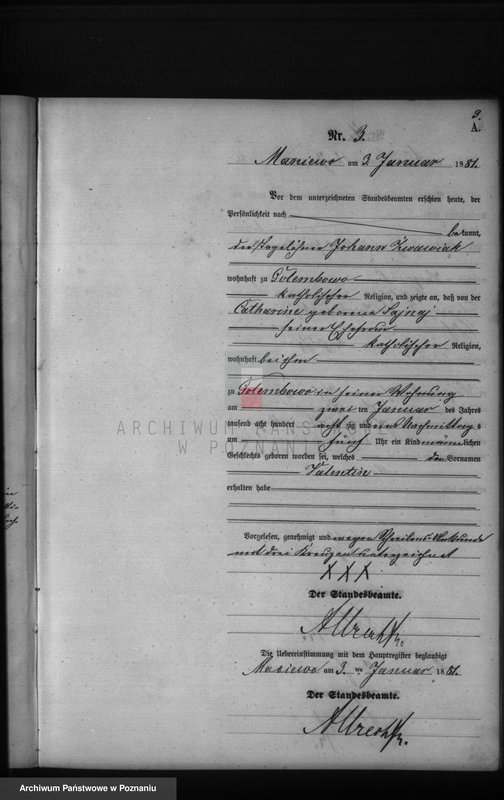 3.
A.
Nr. 3.
Maniewo am 3. Januar 1881.
Vor dem unterzeichneten Standesbeamten erschien heute, der
Persönlichkeit nach
bekannt,
der Tagelöhner Johann
wohnhaft zu Golembowo
katholischer Religion, und zeigte an, daß von der
Catharine geborene Sajnaj
seiner Ehefrau
katholischer Religion,
wohnhaft bei ihm
zu Golembowo in seiner Wohnung
am zwei ten Januar des Jahres
tausend acht hundert acht zig und eins Nachmittags
um fünf Uhr ein Kind männlichen
Geschlechts geboren worden sei, welches den Vornamen
Valentin
erhalten habe
Vorgelesen, genehmigt und wegen Schreibens-Unkunde
mit drei Kreuzen unterzeichnet
XXX
Der Standesbeamte.
Albrecht
Die Uebereinstimmung mit dem Hauptregister beglaubigt
Maniewo am 3. ten Januar 1881.
Der Standesbeamte.
Albrecht
ARCHIWUM PAŃSTWOWE
W POZNANIU
Archiwum Państwowe w Poznaniu